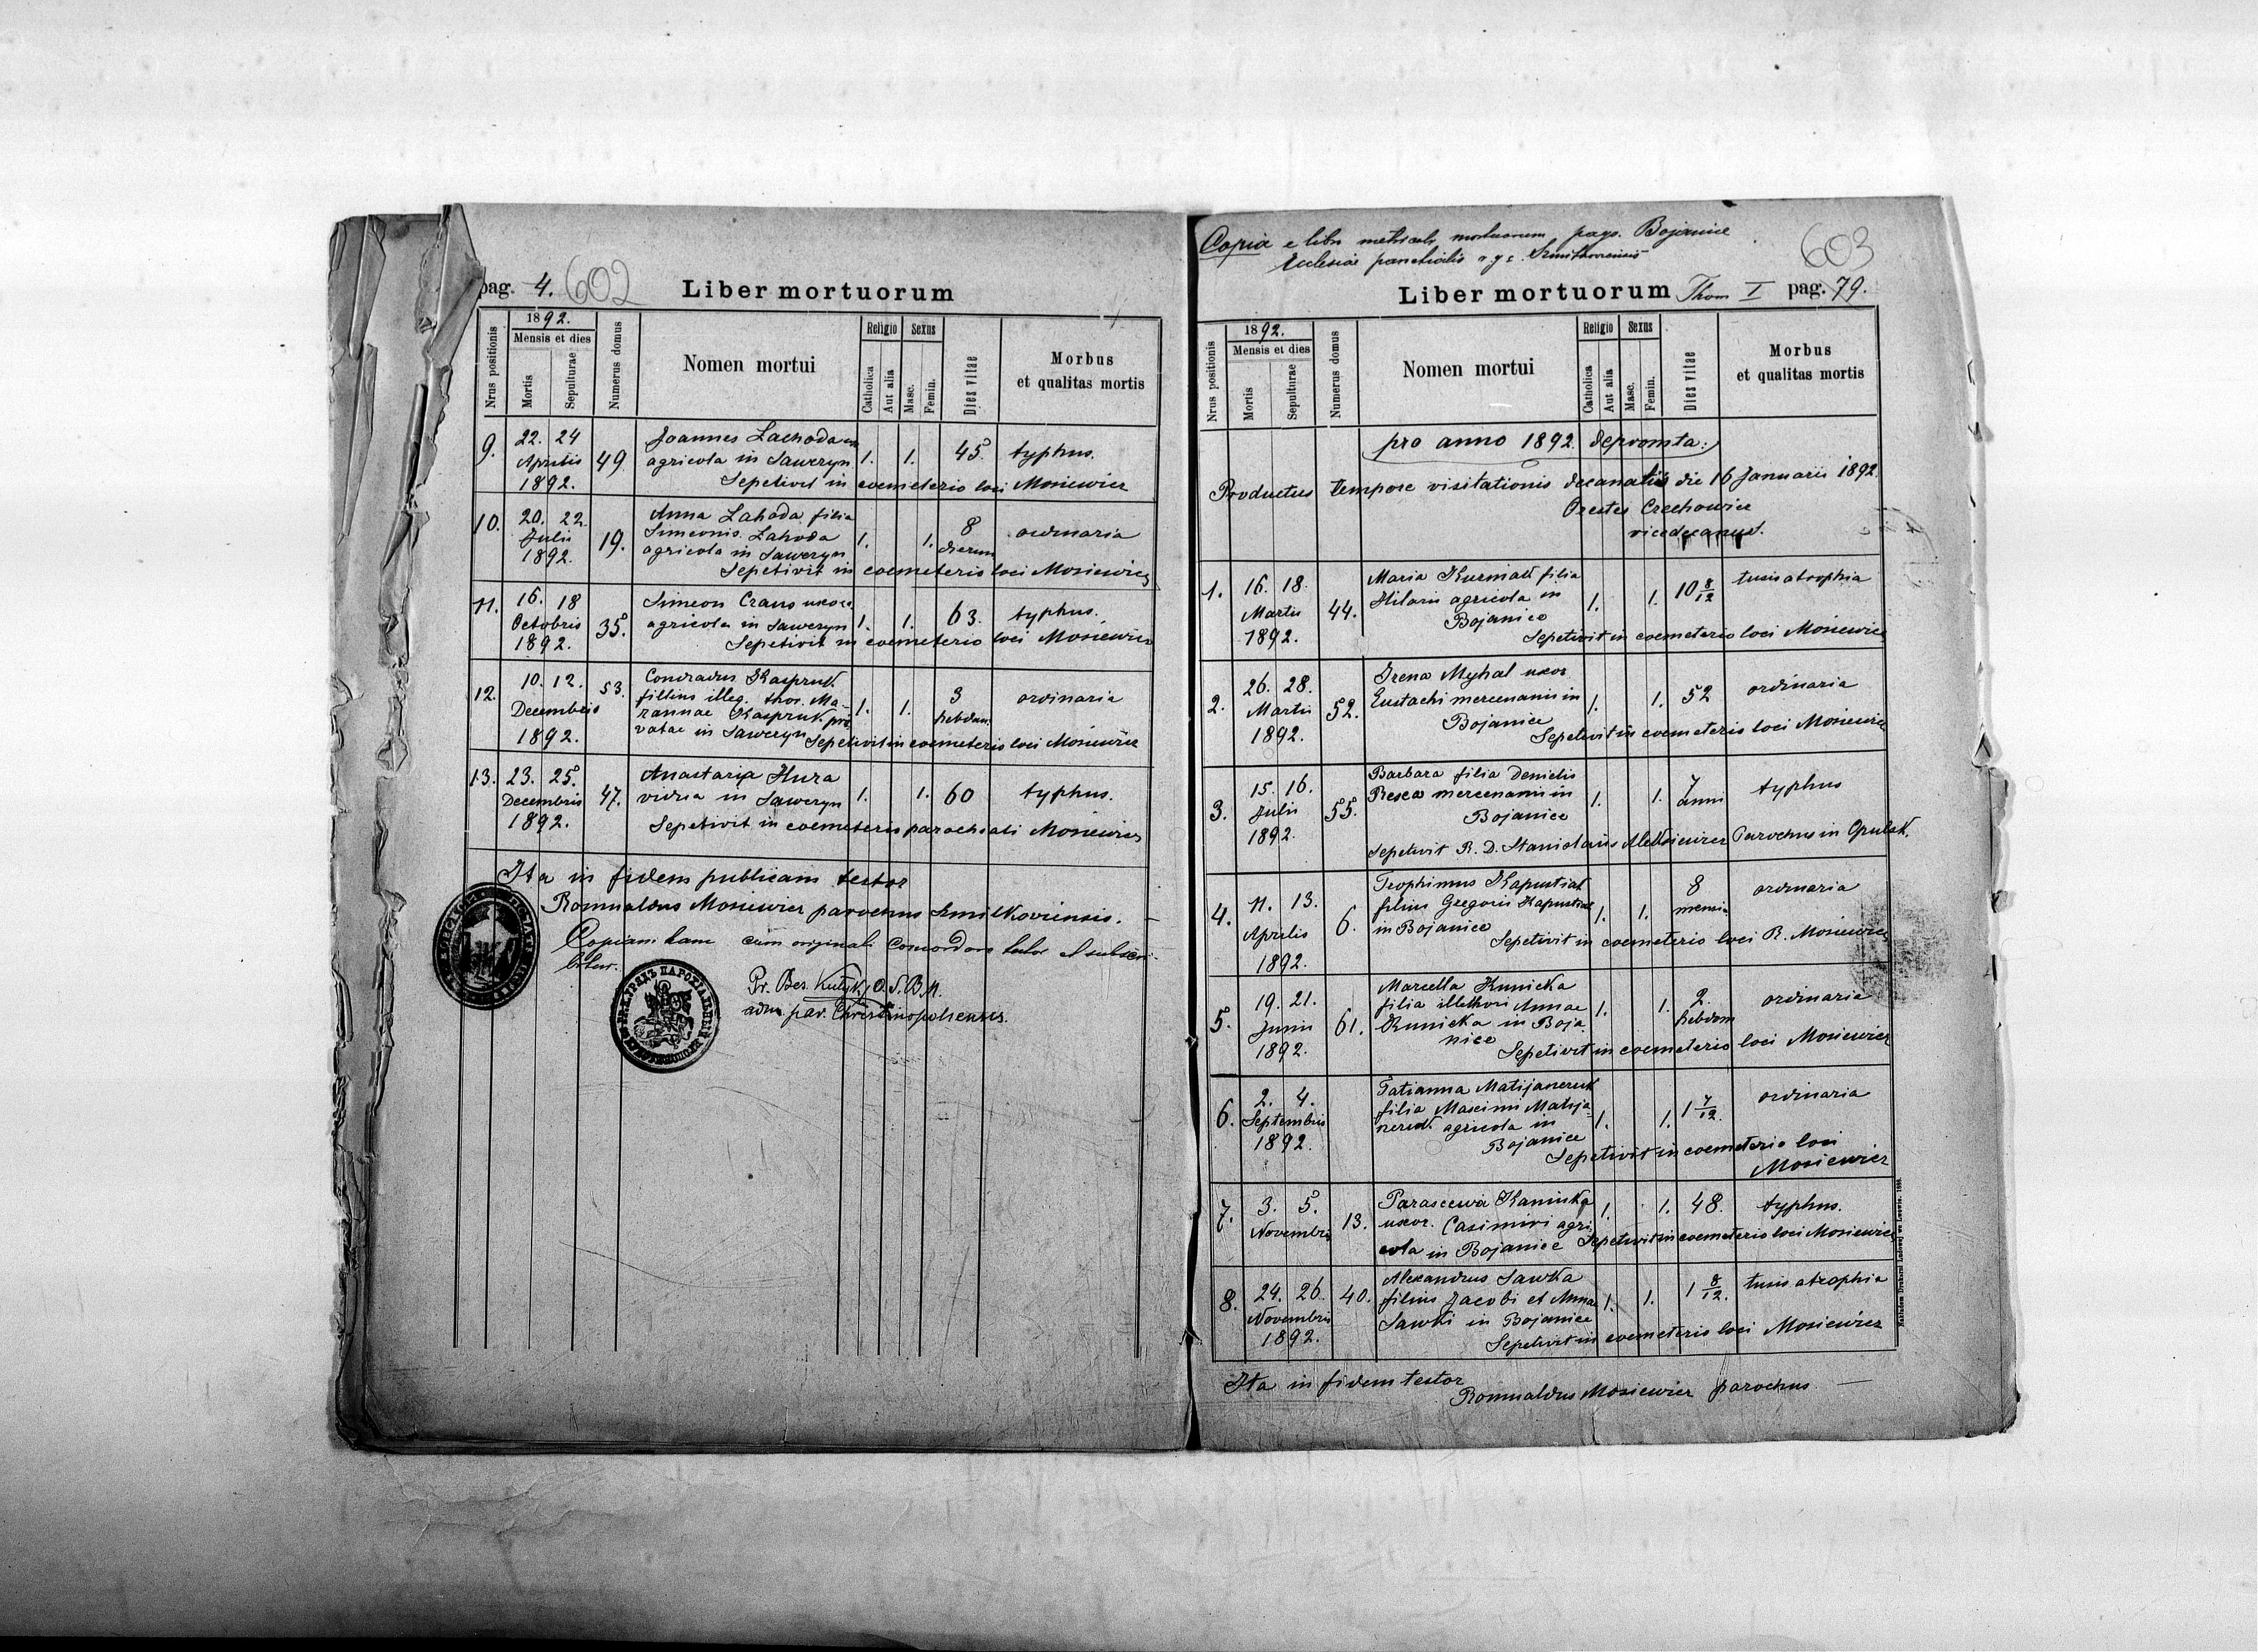 pag. 4. 602 Liber mortuorum
Nrus positionis
1892.
Mensis et dies
Mortis
Sepulturae
Numerus domus
Nomen mortui
Religio
Catholica
Aut alia
Sexus
Masc.
Femin.
Dies vitae
Morbus
et qualitas mortis
9. 22. 24 Aprilis 1892. 49
Joannes Lachoda
agricola in Saweryn 1. 1. 45. typhus.
Sepelivit in coemeterio loci Mosiewicz
10. 20. 22. Julii 1892. 19.
Anna Lahoda filia
Simeonis Lahoda
agricola in Saweryn 1. 1. 8 dierum ordinaria
Sepelivit in coemeterio loci Mosiewicz
11. 16. 18 Octobris 1892. 35.
Simeon Craus
agricola in Saweryn 1. 1. 63. typhus.
Sepelivit in coemeterio loci Mosiewicz
12. 10. 12. Decembris 1892. 53.
Conradus Kaspruk
filius illeg. thor. Ma-
rannae Kaspruk pri
vatae in Saweryn 1. 1. 3 hebdom. ordinaria
Sepelivit in coemeterio loci Mosiewicz
13. 23. 25. Decembris 1892. 47.
Anastasia Hura
vidua in Saweryn 1. 1. 60 typhus.
Sepelivit in coemeterio parochiali Mosiewicz
Ita in fidem publicam testor
Romualdus Mosiewicz parochus Smilkoviensis.
Copiam hanc cum originali concordare testor et subscri-
bitur.
Pr. Bes. Kutyk, O.S.B.M.
adm. par. Christinopoliensis.
Copia e libri metricali mortuorum pago Bojanice
Ecclesiae parochialis r. g. c. Smitkoviensis
603
Liber mortuorum Thom I pag. 79.
Nrus positionis
1892.
Mensis et dies
Mortis
Sepulturae
Numerus domus
Nomen mortui
Religio
Catholica
Aut alia
Sexus
Masc.
Femin.
Dies vitae
Morbus
et qualitas mortis
pro anno 1892. depromta:
Productus tempore visitationis decanatis die 16 Januarii 1892
Orestes Czechowicz
vicedecanus.
1. 16. 18. Martii 1892. 44.
Maria Kurmak filia
Hilarii agricola in
Bojanice 1. 1. 10 8/12 tusis atrophia
Sepelivit in coemeterio loci Mosiewicz
2. 26. 28. Martii 1892. 52.
Irena Myhal uxor
Eustachi mercenarii in
Bojanice 1. 1. 52 ordinaria
Sepelivit in coemeterio loci Mosiewicz
3. 15. 16. Julii 1892. 55.
Barbara filia Danielis
Resca mercenarii in
Bojanice 1. 1. 7 anni typhus
Sepelivit R. D. Stanislaus Aleksiewicz Parochus in Opulsk.
4. 11. 13. Aprilis 1892. 6.
Trophimus Kapustiak
filius Gregorii Kapustiak
in Bojanice 1. 1. 8 mensium ordinaria
Sepelivit in coemeterio loci R. Mosiewicz
5. 19. 21. Junii 1892. 61.
Marcella Kunicka
filia illethori Annae
Kunicka in Boja
nice 1. 1. 2. hebdom ordinaria
Sepelivit in coemeterio loci Mosiewicz
6. 2. 4. Septembris 1892.
Tatianna Matijaneruk
filia Maximi Matija
neruk agricola in
Bojanice 1. 1. 1 7/12. ordinaria
Sepelivit in coemeterio loci
Mosiewicz
7. 3. 5. Novembris 13.
Parascewia Kaminka
uxor. Casimiri agri
cola in Bojanice 1. 1. 48. typhus.
Sepelivit in coemeterio loci Mosiewicz
8. 24. 26. Novembris 1892. 40.
Alexandrus Sawka
filius Jacobi et Annae
Sawki in Bojanice 1. 1. 1 8/12. tusis atrophia
Sepelivit in coemeterio loci Mosiewicz
Ita in fidem testor
Romualdus Mosiewicz parochus
Nakładem Drukarni Ludowej we Lwowie.